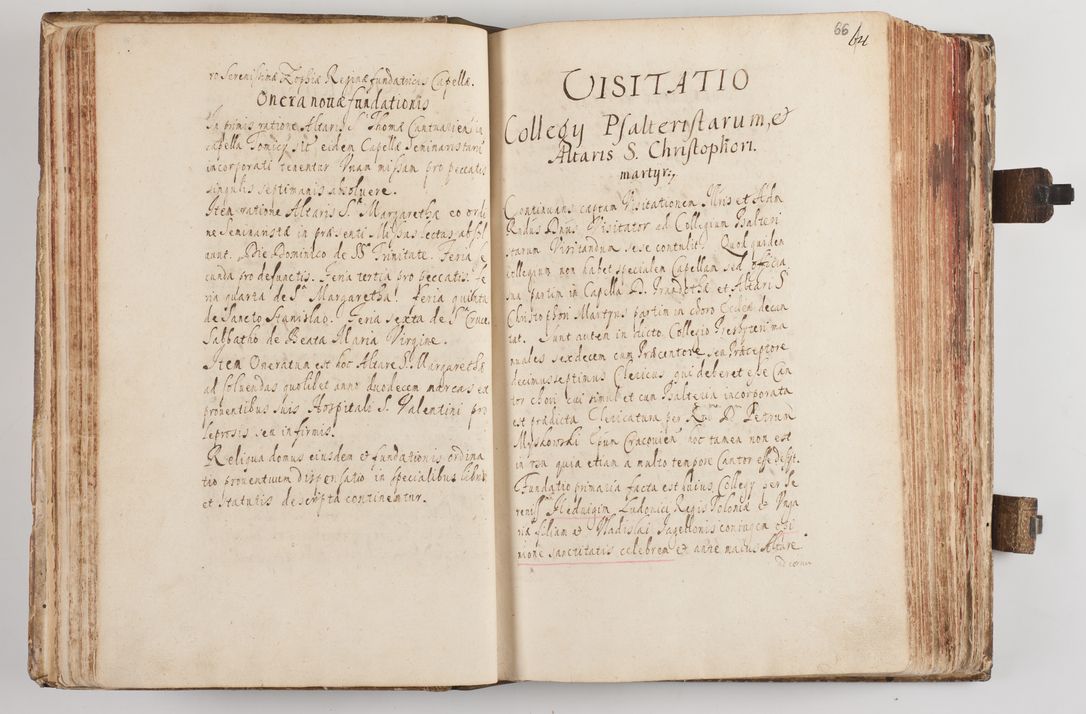 ro Serenissimæ Zophiæ Reginæ fundatricis Capellæ.
Onera novæ fundationis
In primis ratione Altaris S. Thomæ Cantuarien: in
capella Tomicij siti eidem Capellæ Seminaristarū
incorporati tenentur Vnam missam pro peccatis
singulis septimanis absoluere.
Item ratione Altaris S. Margarethæ eo ordi
ne Seminaristæ in præsenti Missas lectas absol
uunt. Die Dominico de SS. Trinitate. Feria se
cunda pro defunctis. Feria tertia pro peccatis. Fe
ria quarta de S. Margaretha. Feria quinta
de Sancto Stanislao. Feria sexta de S. Cruce
Sabbatho de Beata Maria Virgine.
Item Oneratum est hoc Altare S. Margarethæ
ad soluendas quolibet anno duodecem marcas ex
prouentibus suis Hospitali S. Valentini pro
leprosis seu infirmis.
Reliqua domus eiusdem et fundationis ordina
tio prouentuum dispensatio in specialibus libris
et statutis descripta continentur.
66 64
VISITATIO
Collegij Psalteristarum, et
Altaris S. Christophori.
martyr:
Continuans cæptam Visitationem Illris et Adm
Rndus Dnus Visitator ad Collegium Psalteri
starum Visitandum sese contulit. Quod quidem
collegium non habet specialem Capellam sed officia
sua partim in Capella D. Prandothæ et Altari S.
Christophori Martyris partim in choro Ecclesiæ decan
tat. Sunt autem in dicto Collegio Presbyteri ma
nuales sexdecem cum Præcentore seu Præceptore
decimus septimus Clericus, qui deberet esse Can
tor chori cui simul et cum Psalteria incorporata
est prædicta Clericatura per Rm D. Petrum
Myskowski Epum Cracovien: hoc tamen non est
in usu quia etiam a multo tempore Cantor esse desijt.
Fundatio primaria facta est huius Collegij per Se
reniss: Heduigim Ludouici Regis Poloniæ et Vnga
riæ filiam et Vladislai Jagellonis coniugem opi
nione sanctitatis celebrem et ante maius Altare
ad cornu